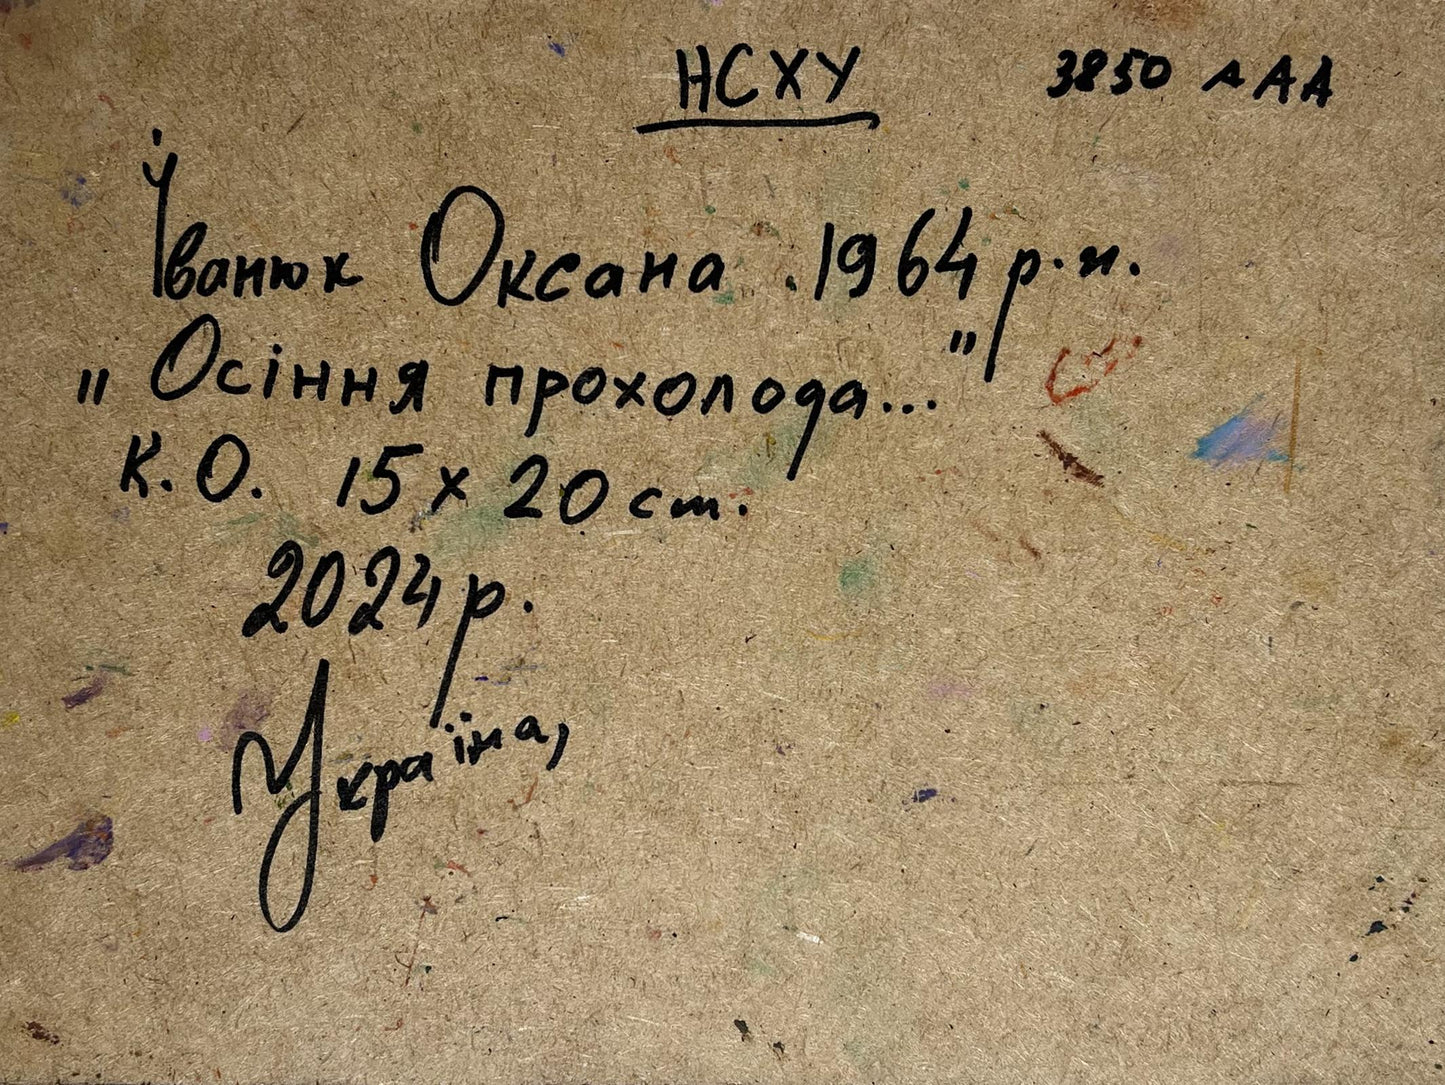 НСХУ 3850 ААА
Іванюк Оксана. 1964 р.н.
"Осіння прохолода..."
К.О. 15 х 20 см.
2024 р.
Україна,